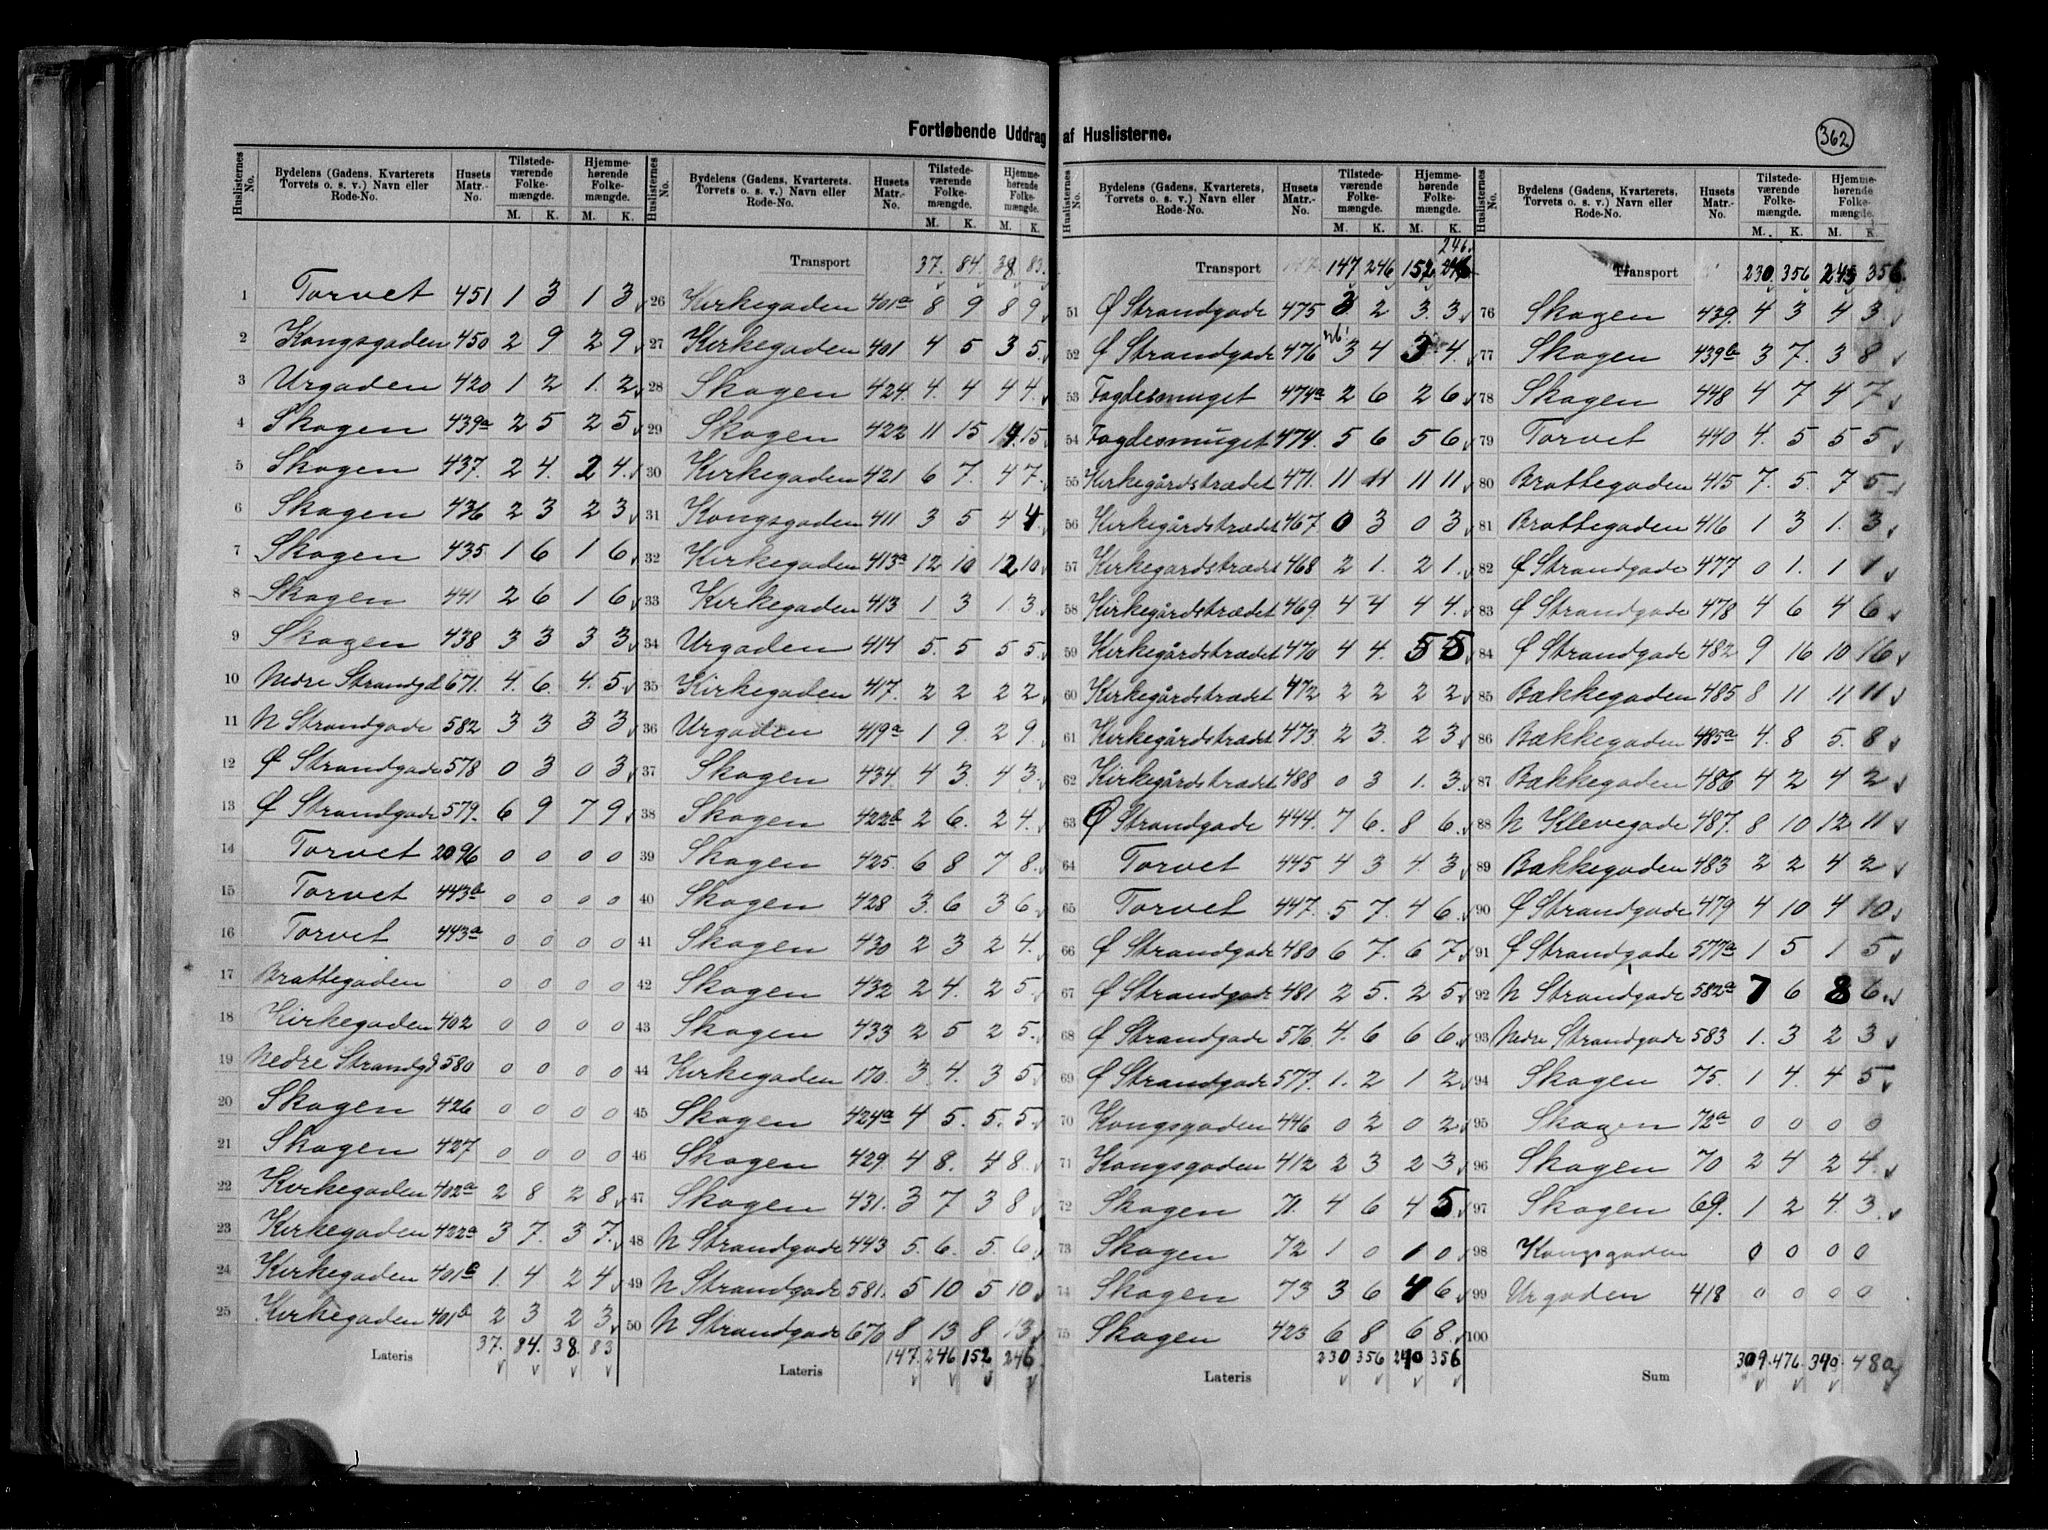 Fortløbende Uddrag af Huslisterne.
362
Huslisternes No. | Bydelens (Gadens, Kvarterets Torvets o. s. v.) Navn eller Rode-No. | Husets Matr.-No. | Tilstedeværende Folkemængde. M. K. | Hjemmehørende Folkemængde. M. K.
1 Torvet 451 1 3 1 3
2 Kongsgaden 450 2 9 2 9
3 Urgaden 420 1 2 1. 2
4 Skagen 439a 2 5 2 5
5 Skagen 437. 2 4. 2 4.
6 Skagen 436 2 3 2 3
7 Skagen 435. 1 6 1 6
8 Skagen 441 2 6 1 6
9 Skagen 438 3 3 3 3
10 Nedre Strandgd 671. 4. 6. 4. 5
11 N Strandgade 582 3 3 3 3
12 Ø Strandgade 578 0 3 0 3
13 Ø Strandgade 579. 6 9 7 9
14 Torvet 2096 0 0 0 0
15 Torvet 443b 0 0 0 0
16 Torvet 443a 0 0 0 0
17 Brattegaden 0 0 0 0
18 Kirkegaden 402 0 0 0 0
19 Nedre Strandgd 580 0 0 0 0
20 Skagen 426 0 0 0 0
21 Skagen 427 0 0 0 0
22 Kirkegaden 402a 2 8 2 8
23 Kirkegaden 422a 3 7. 3 7.
24 Kirkegaden 401c 1. 4 2 4
25 Kirkegaden 401b 2 3 2 3
Lateris 37. 84. 38. 83
Huslisternes No. | Bydelens (Gadens, Kvarterets. Torvets o. s. v.) Navn eller Rode-No. | Husets Matr.-No. | Tilstedeværende Folkemængde. M. K. | Hjemmehørende Folkemængde. M. K.
Transport 37. 84. 38. 83.
26 Kirkegaden 401a 8 9 8 9
27 Kirkegaden 401 4 5 3 5.
28 Skagen 424. 4. 4 4 4.
29 Skagen 422 11 15 14. 15
30 Kirkegaden 421 6 7. 4 7.
31 Kongsgaden 411 3 5 4 4.
32 Kirkegaden 413a 12 10 12 10
33 Kirkegaden 413 1 3 1 3.
34 Urgaden 414 5. 5 5 5.
35 Kirkegaden 417. 2 2 2 2
36 Urgaden 419a 1 9. 2 9
37 Skagen 434. 4 3. 4 3.
38 Skagen 422b 2 6. 2 4.
39 Skagen 425. 6 8 7 8.
40 Skagen 428 3. 6 3 6
41 Skagen 430 2 3 2 4.
42 Skagen 432 2 4. 2 5
43 Skagen 433 2 5 2 5.
44 Kirkegaden 170. 3. 4. 3 5
45 Skagen 424a 4 5. 5. 5
46 Skagen 429. 4 8. 4 8.
47 Skagen 431. 3 7 3 8
48 N Strandgade 443 5. 6. 5. 6
49 N Strandgade 581. 5 10 5 10
50 N Strandgade 670 8 13 8 13
Lateris 147. 246 152 246
Huslisternes No. | Bydelens (Gadens, Kvarterets, Torvets o. s. v.) Navn eller Rode-No. | Husets Matr.-No. | Tilstedeværende Folkemængde. M. K. | Hjemmehørende Folkemængde. M. K.
246.
Transport 147. 147 246 152 246
51 Ø Strandgade 475 3 2 3. 3
52 Ø Strandgade 476 3 4 3 4.
53 Fogdesmuget 474a 2 6 2 6
54 Fogdesmuget 474. 5 6 5 6
55 Kirkegårdstrædet 471. 11 11 11 11
56 Kirkegårdstrædet 467. 0 3 0 3
57 Kirkegårdstrædet 468 2 1. 2 1.
58 Kirkegårdstrædet 469. 4 4 4 4.
59 Kirkegårdstrædet 470 4 4. 5 5
60 Kirkegårdstrædet 472 2 2 2 2
61 Kirkegårdstrædet 473. 2 3. 2 3
62 Kirkegårdstrædet 488 0 3 1. 3
63 Ø Strandgade 444. 7 6. 8 6.
64 Torvet 445 4 3 4. 3
65 Torvet 447. 5 7. 4 6.
66 Ø Strandgade 480 6 7. 6 7
67 Ø Strandgade 481 2 5. 2 5
68 Ø Strandgade 576 4. 6 6 6.
69 Ø Strandgade 577. 1. 2 1 2
70 Kongsgaden 446 0 2 0 2
71 Kongsgaden 412 2 3 2 3
72 Skagen 71. 4 6 4 5
73 Skagen 72 1 0 1 0
74 Skagen 73 3 6 4 6
75 Skagen 423 6 8 6 8.
Lateris 230 356 240 356
Huslisternes No. | Bydelens (Gadens, Kvarterets, Torvets o. s. v.) Navn eller Rode-No. | Husets Matr.-No. | Tilstedeværende Folkemængde. M. K. | Hjemmehørende Folkemængde. M. K.
Transport 230 356 245 356
76 Skagen 439. 4 3 4 3
77 Skagen 439b 3 7. 3 8
78 Skagen 448 4 7 4 7
79 Torvet 440 4. 5 5 5
80 Brattegaden 415 7. 5. 7 5
81 Brattegaden 416 1 3 1. 3
82 Ø Strandgade 477 0 1. 1 1
83 Ø Strandgade 478 4 6 4 6
84 Ø Strandgade 482 9 16 10 16
85 Bakkegaden 485 8 11 11 11
86 Bakkegaden 485a 4. 8 5. 8
87 Bakkegaden 486 4 2 4 2
88 N Klevegade 487. 8 10 12 11
89 Bakkegaden 483 2 2 4 2
90 Ø Strandgade 479 4 10 4 10
91 Ø Strandgade 577a 1 5 1 5
92 N Strandgade 582a 7 6 8 6.
93 Nedre Strandgade 583 1. 3 2 3
94 Skagen 75. 1 4. 4 5
95 Skagen 72a 0 0 0 0
96 Skagen 70 2 4 2 4.
97 Skagen 69. 1 2 4. 3.
98 Kongsgaden 0 0 0 0
99 Urgaden 418 0 0 0 0
100
Sum 309. 476. 340. 480